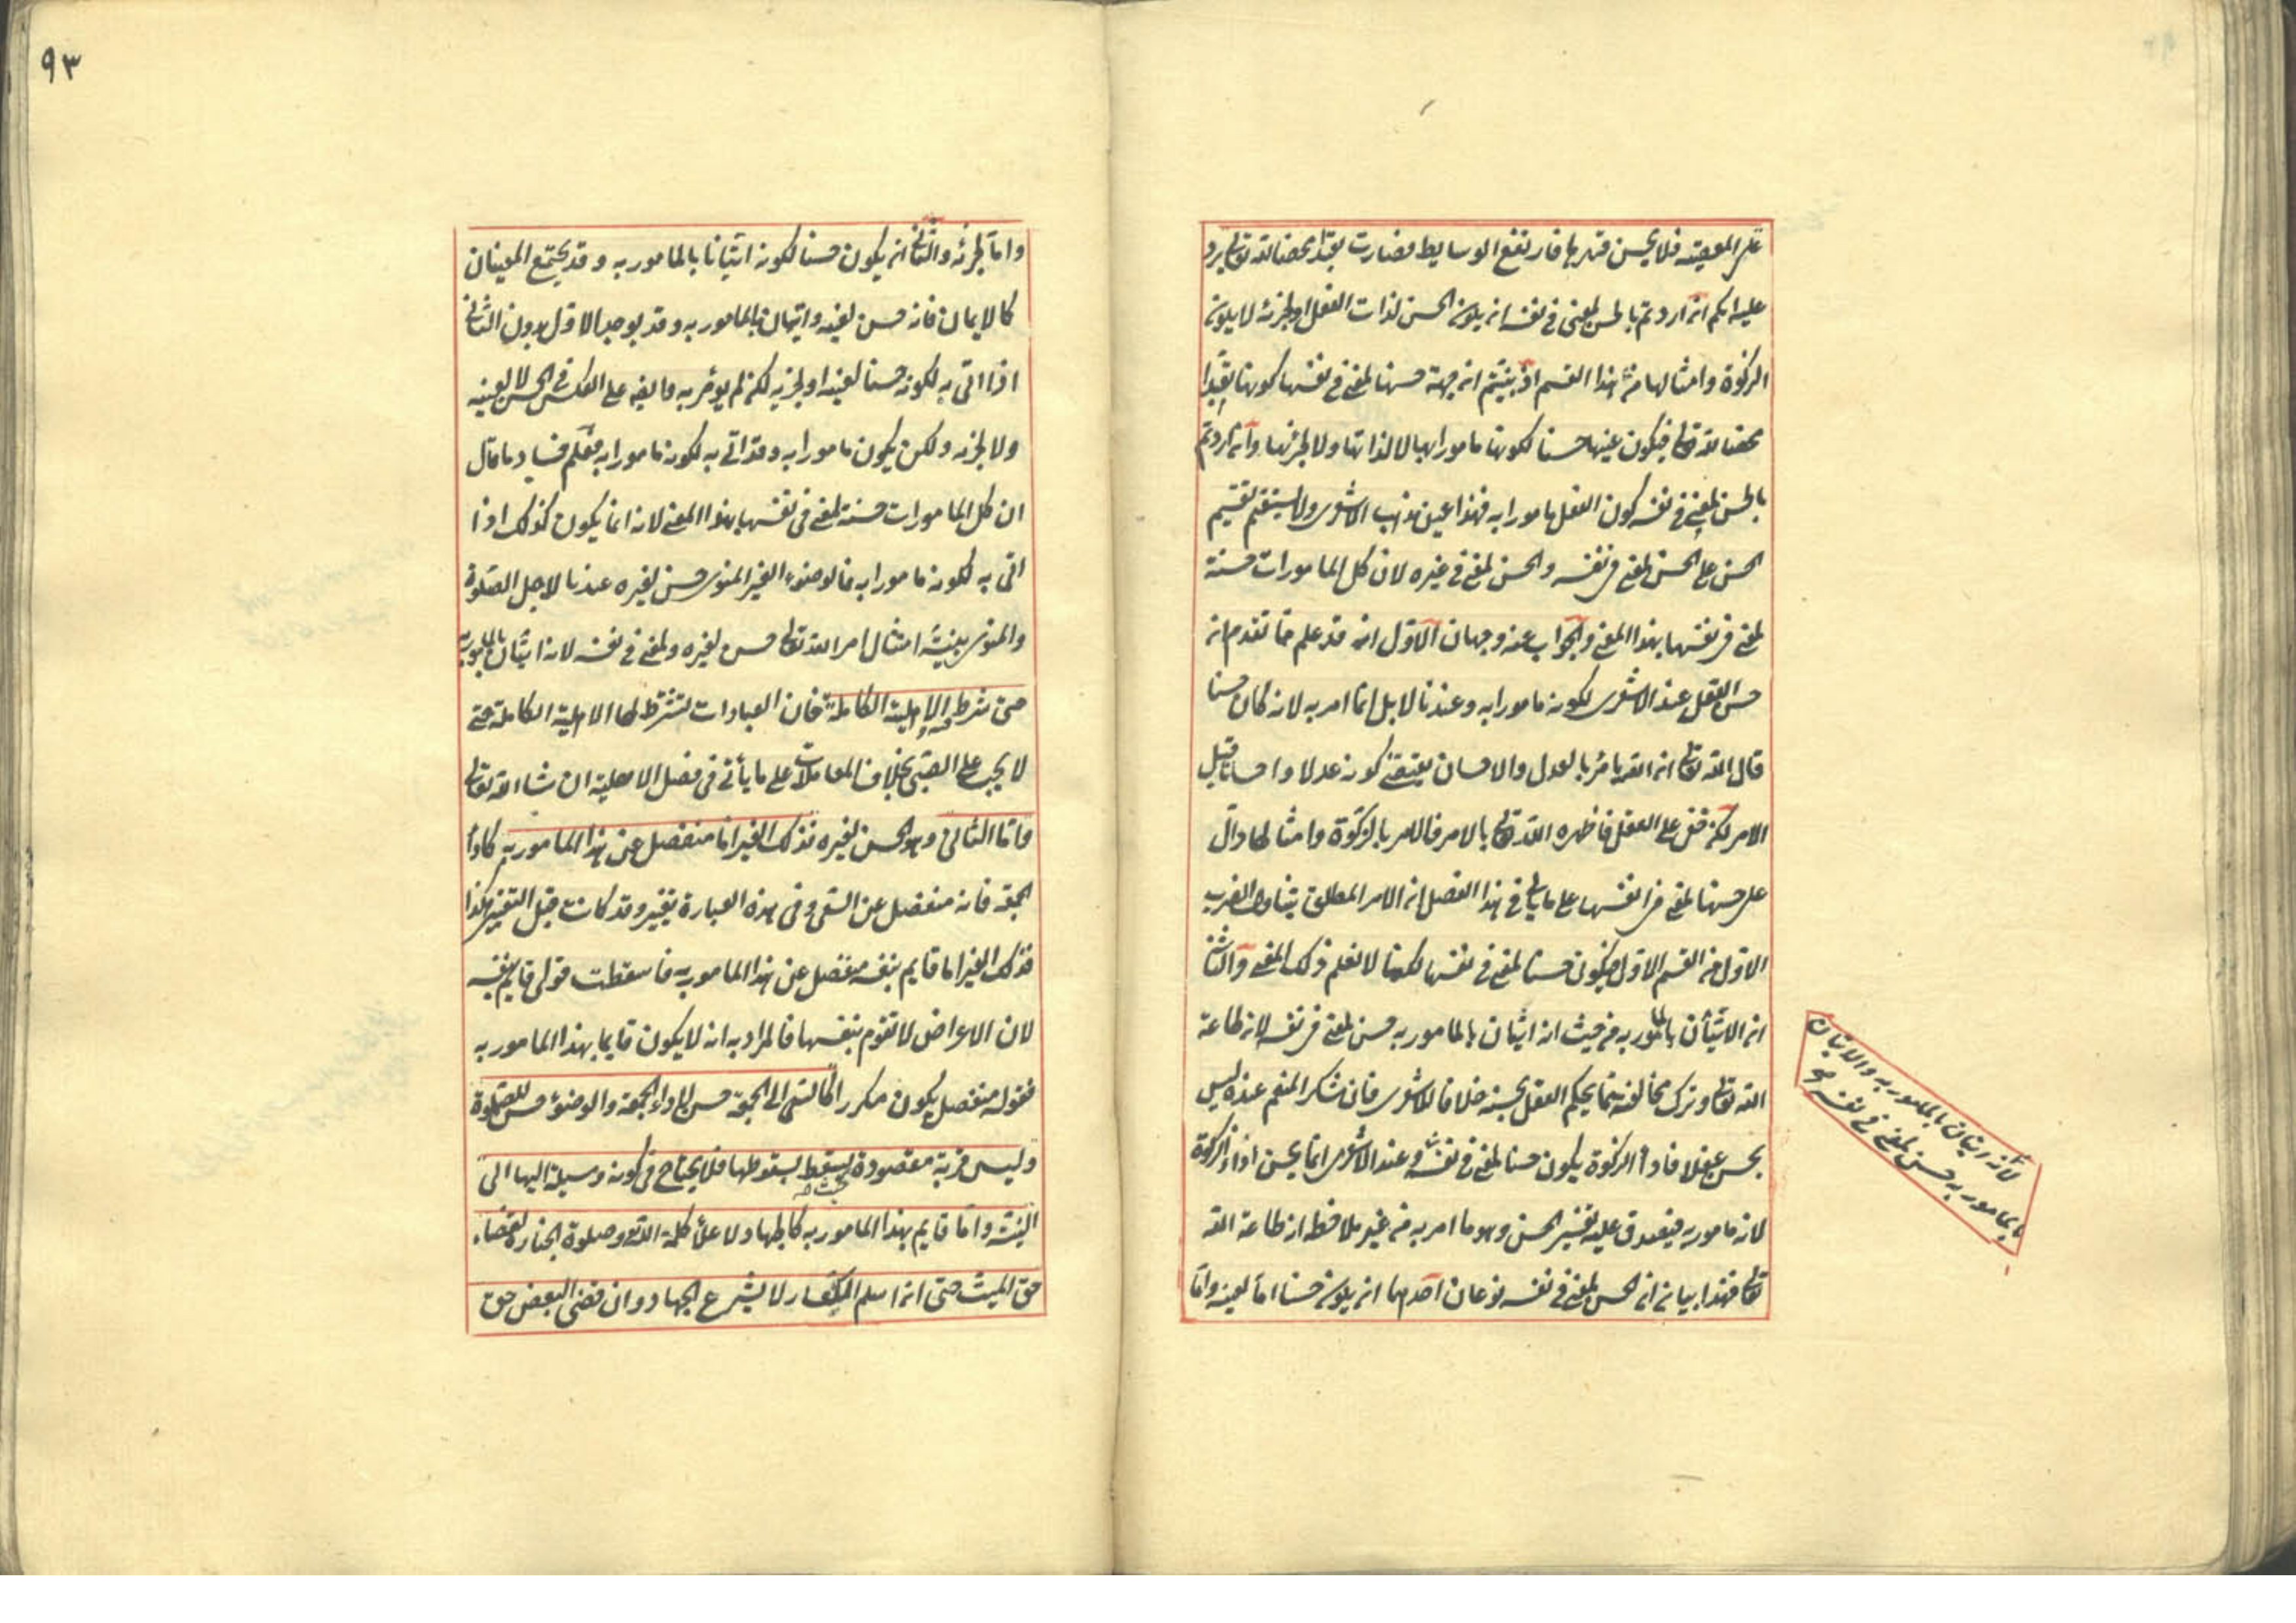 على المعصية فلا يحسن قهرها فارتفع الوسايط فصارت تعبدا محضا لله تعالى يرد
عليه انكم ان اردتم بالحسن لمعنى في نفسه ان يكون الحسن لذات الفعل او لجزئه لا يكون
الزكوة وامثالها من هذا القسم اذ بينتم ان جهة حسنها لمعنى في نفسها كونها تعبدا
محضا لله تعالى فيكون عينها حسنا لكونها مامورا بها لا لذاتها ولا لجزئها وان اردتم
بالحسن لمعنى في نفسه كون الفعل مامورا به فهذا عين مذهب الاشعرى ولا يستقيم تقسيم
الحسن على الحسن لمعنى في نفسه والحسن لمعنى في غيره لان كل المامورات حسنة
لمعنى في نفسها بهذا المعنى والجواب عنه وجهان الاول انه قد علم مما تقدم ان
حسن الفعل عند الاشعرى لكونه مامورا به وعندنا لا بل انما امر به لانه كان حسنا
قال الله تعالى ان الله يامر بالعدل والاحسان يقتضى كونه عدلا واحسانا قبل
الامر لكن خفى على العقل فاظهره الله تعالى بالامر فالامر بالزكوة وامثالها دال
على حسنها لمعنى في نفسها على ما ياتى في هذا الفصل ان الامر المطلق يتناول الضرب
الاول من القسم الاول فيكون حسنا لمعنى في نفسها لكنا لا نعلم ذلك المعنى والثانى
ان الاتيان بالمامور به من حيث انه اتيان بالمامور به حسن لمعنى في نفسه لانه طاعة
الله تعالى وترك مخالفته مما يحكم العقل بحسنه خلافا للاشعرى فان شكر المنعم عنده ليس
بحسن عقلا فاداء الزكوة يكون حسنا لمعنى في نفسه وعند الاشعرى انما يحسن اداء الزكوة
لانه مامور به فيصدق عليه تفسير الحسن وهو ما امر به من غير ملاحظة انه طاعة الله
تعالى فهذا بيان ان الحسن لمعنى في نفسه نوعان احدهما ان يكون حسنا اما لعينه واما
لانه اتيان بالمامور به والاتيان
بالمامور به حسن لمعنى في نفسه صح
٩٣
واما لجزئه والثانى ان يكون حسنا لكونه اتيانا بالمامور به وقد يجتمع المعنيان
كالايمان فانه حسن لعينه واتيان بالمامور به وقد يوجد الاول بدون الثانى
اذا اتى به لكونه حسنا لعينه او لجزئه لكن لم يؤمر به وايضا على العكس في الحسن لا لعينه
ولا لجزئه ولكن يكون مامورا به وقد اتى به لكونه مامورا به فعلم فساد ما قال
ان كل المامورات حسنة لمعنى في نفسها بهذا المعنى لانه انما يكون كذلك اذا
اتى به لكونه مامورا به فالوضوء الغير المنوى حسن لغيره عندنا لاجل الصلوة
والمنوى بنية امتثال امر الله تعالى حسن لغيره ولمعنى في نفسه لانه اتيان بالمامور به
حتى شرط فيه الاهلية الكاملة فان العبادات تشترط لها الاهلية الكاملة حتى
لا يجب على الصبى بخلاف المعاملات على ما يأتى في فصل الاهلية ان شا الله تعالى
واما الثانى وهو الحسن لغيره فذلك الغير اما منفصل عن هذا المامور به كاداء
الجمعة فانه منفصل عن السعى وفى هذه العبارة تغيير وقد كانت قبل التغيير هكذا
فذلك الغير اما قايم بنفسه منفصل عن هذا المامور به فاسقطت قولى قايم بنفسه
لان الاعراض لا تقوم بنفسها فالمراد به انه لا يكون قايما بهذا المامور به
فقوله منفصل يكون مكررا كالسعى الى الجمعة حسن لاداء الجمعة والوضوء حسن للصلوة
وليس قربة مقصودة ليسقط بسقوطها فلا يحتاج في كونه وسيلة اليها الى
النية واما قايم بهذا المامور به كالجهاد لاعلاء كلمة الله وصلوة الجنازة لقضاء
حق الميت حتى ان اسلم الكفار لا يشرع الجهاد وان قضى البعض حق